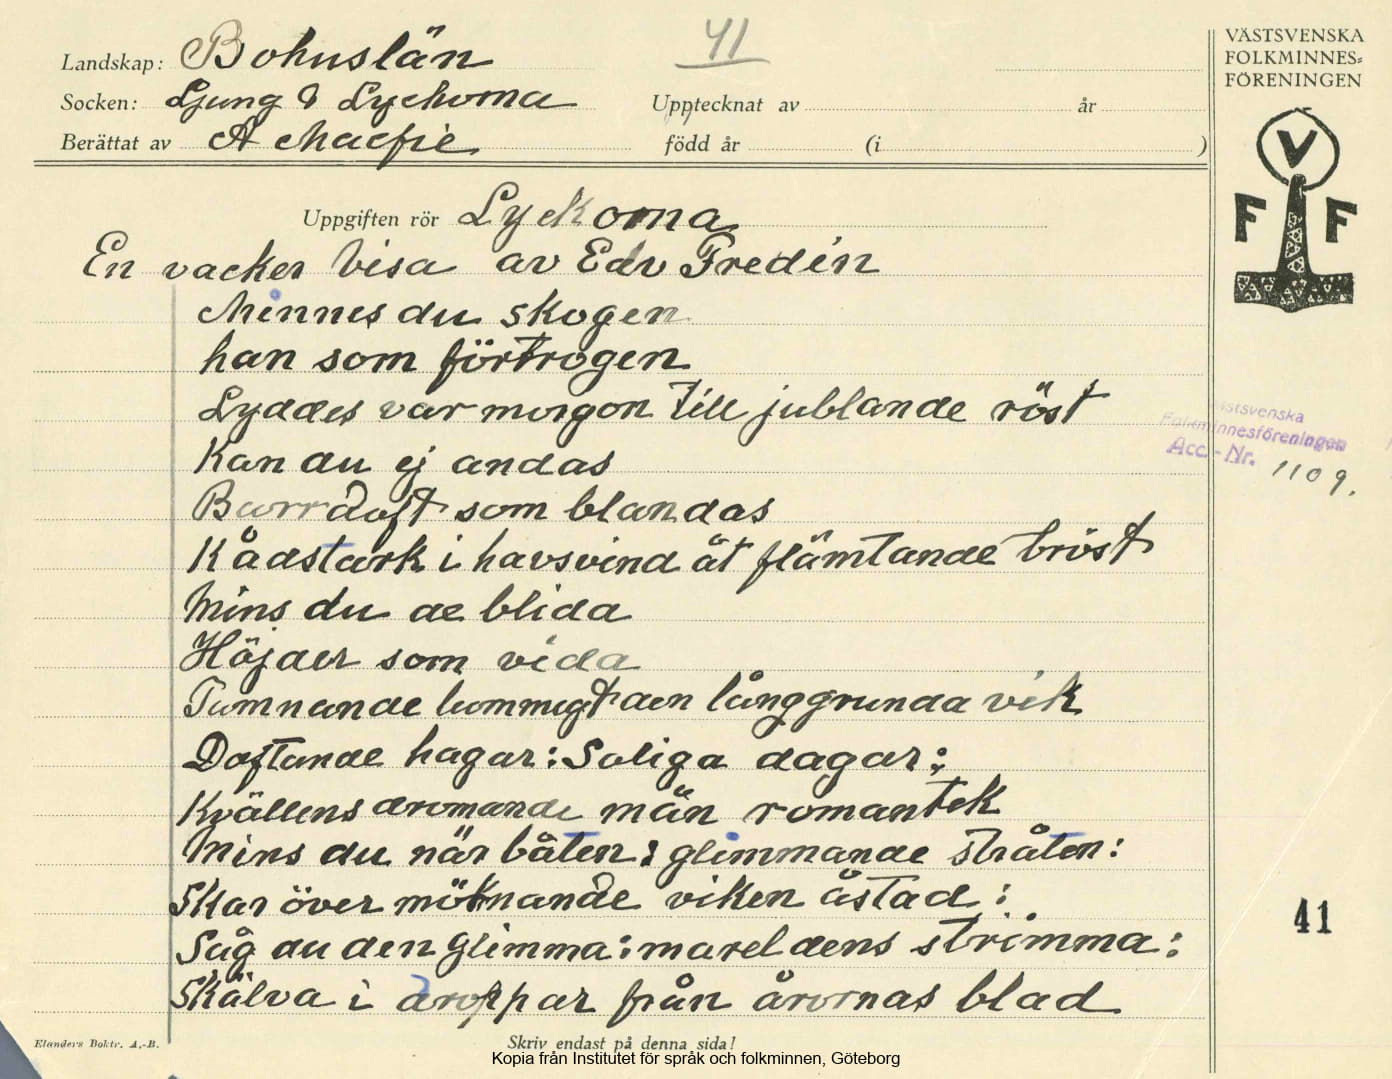 Landskap: Bohuslän
41
VÄSTSVENSKA
FOLKMINNES=
FÖRENINGEN
Socken: Ljung & Lyckorna
Upptecknat av
år
Berättat av A Macfie
född år (i )
V
F F
Uppgiften rör Lyckorna
En vacker Visa av Edv Fredin
Minnes du skogen
han som förtrogen
Lyddes var morgon till jublande röst
Kan du ej andas
Barrdoft som blandas
Kådstark i havsvind åt flämtande bröst
Mins du de blida
Höjder som vida
Famnande hommigt den långgrunda vik
Doftande hagar: Saliga dagar:
Kvällens drömande män romantik
Mins du när båten: glimmande stråten:
Skar över mörknande viken åstad:
Såg du den glimma: mareldens strimma:
Skälva i droppar från årornas blad
Västsvenska
Folkminnesföreningen
Acc.-Nr. 1109.
41
Elanders Boktr. A.-B.
Skriv endast på denna sida!
Kopia från Institutet för språk och folkminnen, Göteborg